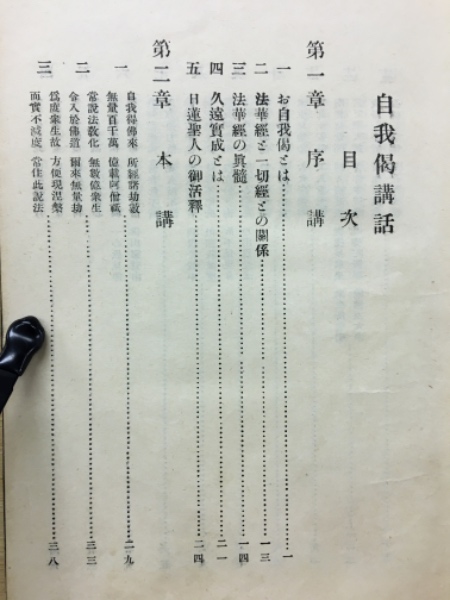 自我偈講話
目次
第一章 序講
一 お自我偈とは……一
二 法華經と一切經との關係……一三
三 法華經の眞髓……一四
四 久遠實成とは……二一
五 日蓮聖人の御活釋……二四
第二章 本講
一 自我得佛來 所經諸劫數
無量百千萬 億載阿僧祇……二九
二 常說法敎化 無數億衆生
令入於佛道 爾來無量劫……三三
三 爲度衆生故 方便現涅槃
而實不滅度 常住此說法……三八